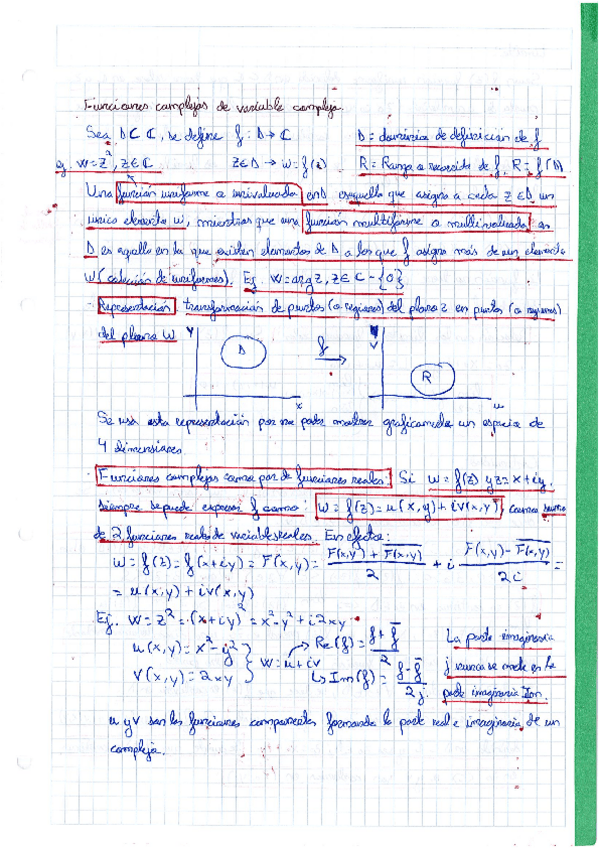 Funciones complejas de variable compleja.
Sea D ⊂ ℂ, se define f: D → ℂ D = dominio de definición de f
Ej w = z², z ∈ ℂ z ∈ D → w = f(z) R = Rango o recorrido de f, R = f(D)
Una función uniforme o univaluada en D es aquella que asigna a cada z ∈ D un
único elemento w, mientras que una función multiforme o multivaluada en
D es aquella en la que existen elementos de D a los que f asigna más de un elemento
w (colección de uniformes). Ej w = arg z, z ∈ ℂ - {0}
Representación transformación de puntos (o regiones) del plano z en puntos (o regiones)
del plano w
y D x f v R u
Se usa esta representación por no poder mostrar graficamente un espacio de
4 dimensiones
Funciones complejas como par de funciones reales. Si w = f(z) y z = x + iy,
siempre se puede expresar f como: w = f(z) = u(x,y) + iv(x,y) como suma
de 2 funciones reales de variables reales. En efecto:
w = f(z) = f(x+iy) = F(x,y) = (F(x,y) + \overline{F(x,y)})/2 + i (F(x,y) - \overline{F(x,y)})/2i =
= u(x,y) + iv(x,y)
Ej. w = z² = (x+iy)² = x² - y² + i2xy
u(x,y) = x² - y²
v(x,y) = 2xy } w = u + iv
→ Re(f) = (f + \overline{f})/2
↳ Im(f) = (f - \overline{f})/2j
La parte imaginaria
j nunca se mete en la
parte imaginaria Im.
u y v son las funciones componentes formando la parte real e imaginaria de un
complejo.